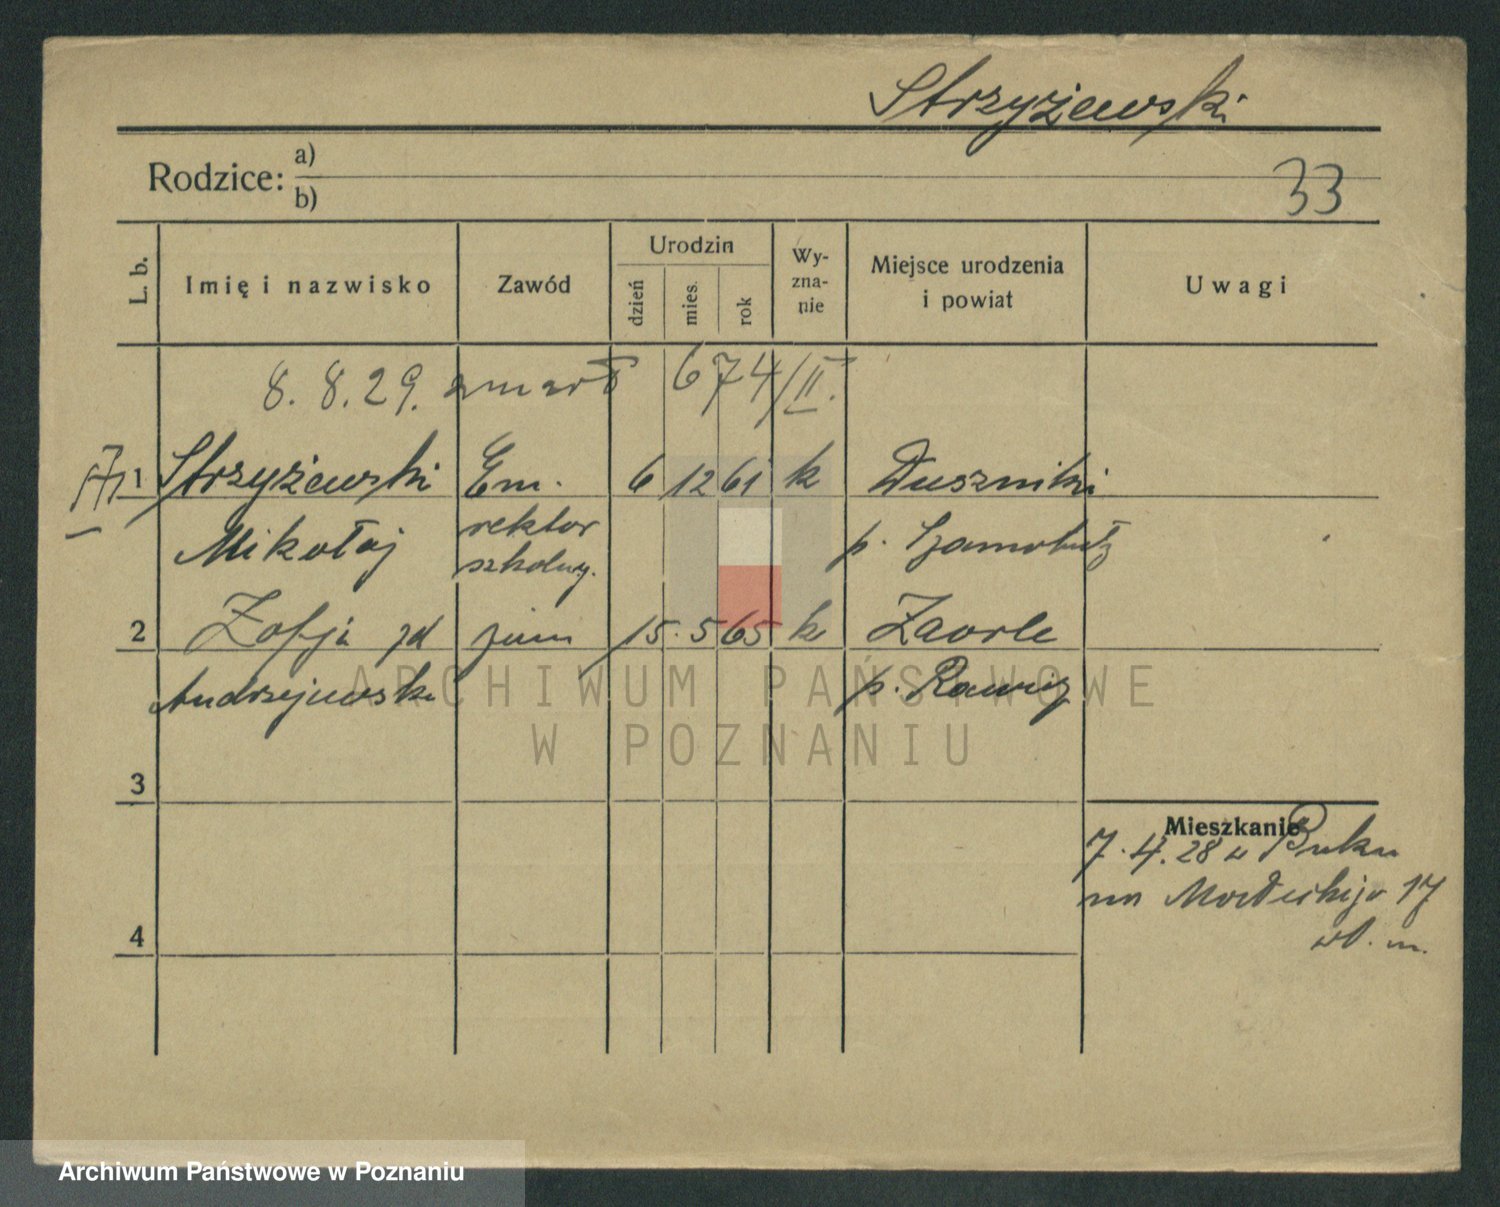 Strzyżewski
Rodzice: a)
b)
33
L. b.
Imię i nazwisko
Zawód
Urodzin
dzień
mies.
rok
Wy-
zna-
nie
Miejsce urodzenia
i powiat
Uwagi
8. 8. 29. zmarł 674/II.
1 Strzyżewski Em. 6 12 61 k Duszniki
Mikołaj rektor p. Szamotuły
szkolny.
2 Zofja zd 15. 5 65 k Zaorle
Andrzejewska p. Rawicz
3
Mieszkanie
7. 4. 28 w Buku
17
4
ARCHIWUM PAŃSTWOWE
W POZNANIU
Archiwum Państwowe w Poznaniu